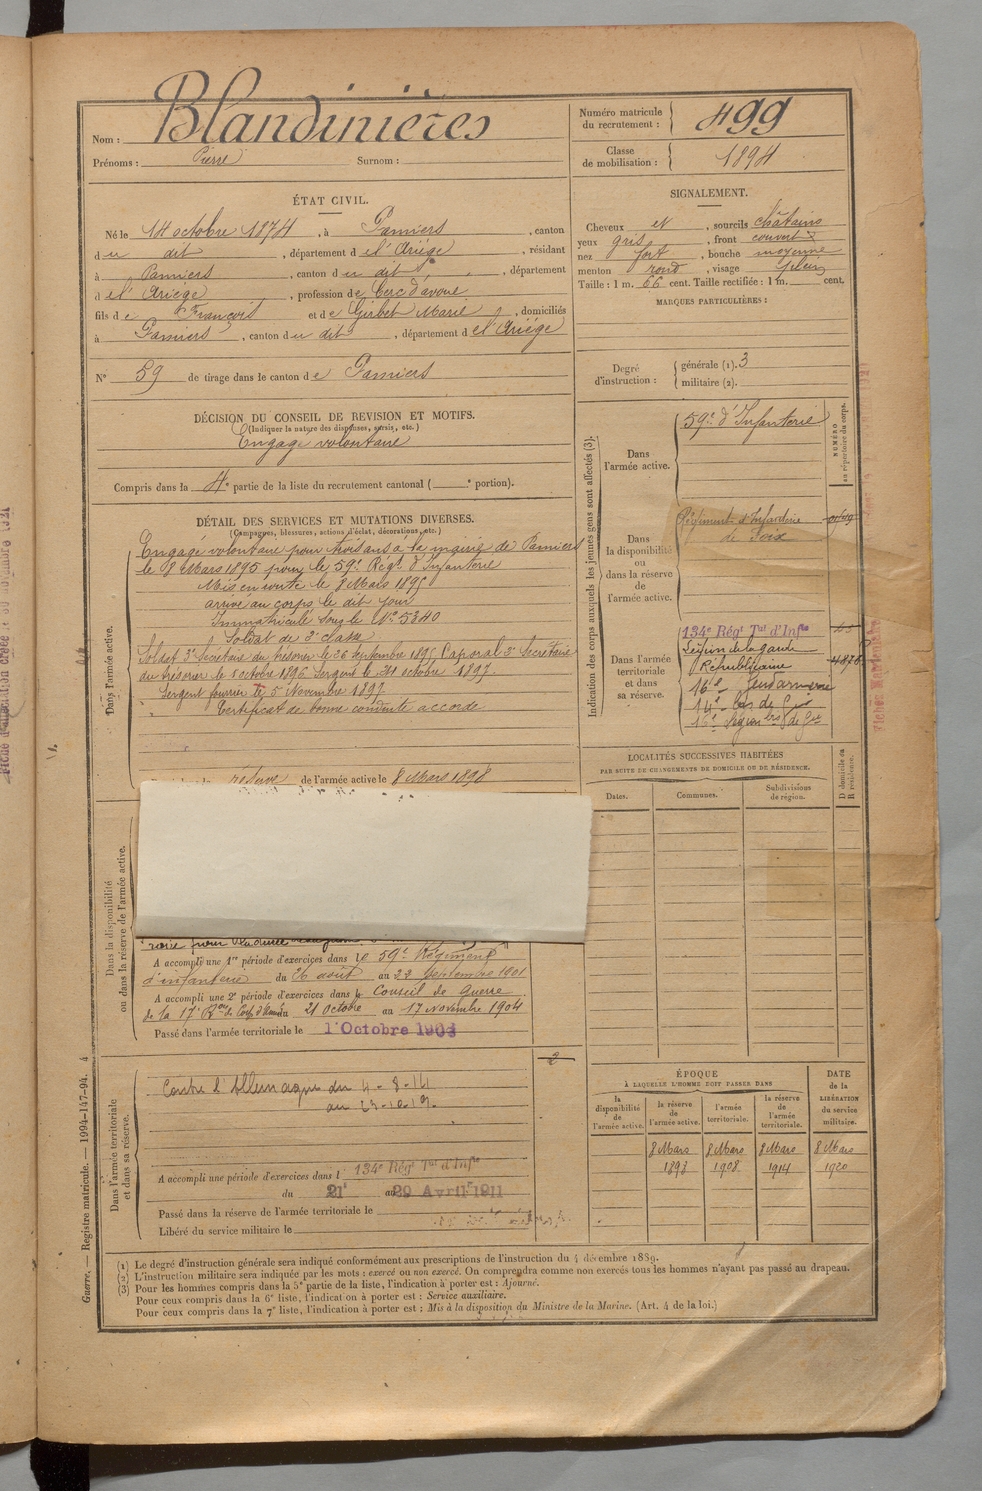 Nom : Blandinières
Prénoms : Pierre Surnom :
Numéro matricule du recrutement : 499
Classe de mobilisation : 1894
ÉTAT CIVIL.
Né le 14 octobre 1874, à Pamiers, canton
du dit, département de l'Ariège, résidant
à Pamiers, canton du dit, département
de l'Ariège, profession de Clerc d'avoué
fils de François et de Girbet Marie, domiciliés
à Pamiers, canton du dit, département de l'Ariège
N° 59 de tirage dans le canton de Pamiers
SIGNALEMENT.
Cheveux et, sourcils châtains
yeux gris, front couvert
nez fort, bouche moyenne
menton rond, visage plein
Taille : 1 m. 66 cent. Taille rectifiée : 1 m. cent.
MARQUES PARTICULIÈRES :
Degré d'instruction : générale (1). 3
militaire (2).
DÉCISION DU CONSEIL DE REVISION ET MOTIFS.
(Indiquer la nature des dispenses, sursis, etc.)
Engagé volontaire
Compris dans la 4e partie de la liste du recrutement cantonal ( e portion).
DÉTAIL DES SERVICES ET MUTATIONS DIVERSES.
(Campagnes, blessures, actions d'éclat, décorations, etc.)
Dans l'armée active.
Engagé volontaire pour trois ans à la mairie de Pamiers
le 8 Mars 1895 pour le 59e Régt d'Infanterie
Mis en route le 8 Mars 1895
arrivé au corps le dit jour
Immatriculé sous le N° 5340
Soldat de 2e classe
Soldat 3e Secrétaire du trésorier le 26 septembre 1895 Caporal 2e Secrétaire
du trésorier le 1 octobre 1896 Sergent le 31 octobre 1897
Sergent fourrier le 5 Novembre 1897
Certificat de bonne conduite accordé
réserve de l'armée active le 8 Mars 1898
Dans la disponibilité ou dans la réserve de l'armée active.
A accompli une 1re période d'exercices dans le 59e Régiment
d'infanterie du 26 août au 22 septembre 1901
A accompli une 2e période d'exercices dans le Conseil de Guerre
de la 17e du 21 Octobre au 17 novembre 1904
Passé dans l'armée territoriale le 1 Octobre
Dans l'armée territoriale et dans sa réserve.
2
Contre l'Allemagne du 4-8-14
au
A accompli une période d'exercices dans l 134e Régt Tal d'Infie
du 21 au 29 Avril 1911
Passé dans la réserve de l'armée territoriale le
Libéré du service militaire le
Indication des corps auxquels les jeunes gens sont affectés (3).
NUMÉRO au répertoire du corps.
Dans l'armée active.
59e d'Infanterie
Dans la disponibilité ou dans la réserve de l'armée active.
Régiment d'Infanterie
de Foix
Dans l'armée territoriale et dans sa réserve.
134e Régt Tal d'Infie
Légion de la garde
Républicaine
16e Gendarmerie
LOCALITÉS SUCCESSIVES HABITÉES
PAR SUITE DE CHANGEMENTS DE DOMICILE OU DE RÉSIDENCE.
Dates. Communes. Subdivisions de région. D domicile ou R résidence.
ÉPOQUE
À LAQUELLE L'HOMME DOIT PASSER DANS
la disponibilité de l'armée active.
la réserve de l'armée active.
l'armée territoriale.
la réserve de l'armée territoriale.
DATE de la LIBÉRATION du service militaire.
8 Mars 8 Mars 8 Mars 8 Mars
1898 1908 1914 1920
(1) Le degré d'instruction générale sera indiqué conformément aux prescriptions de l'instruction du 4 décembre 1889.
(2) L'instruction militaire sera indiquée par les mots : exercé ou non exercé. On comprendra comme non exercés tous les hommes n'ayant pas passé au drapeau.
(3) Pour les hommes compris dans la 5e partie de la liste, l'indication à porter est : Ajourné.
Pour ceux compris dans la 6e liste, l'indication à porter est : Service auxiliaire.
Pour ceux compris dans la 7e liste, l'indication à porter est : Mis à la disposition du Ministre de la Marine. (Art. 4 de la loi.)
Guerre. — Registre matricule. — 1994-147-94. 4